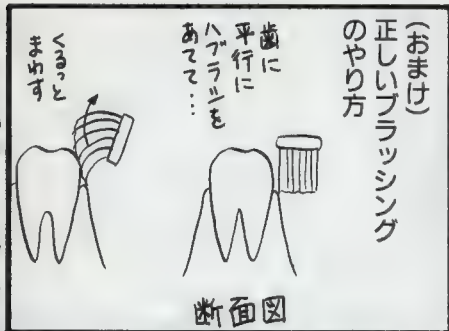 (おまけ)
正しいブラッシング
のやり方
歯に
平行に
ハブラシを
あてて…
くるっと
まわす
断面図